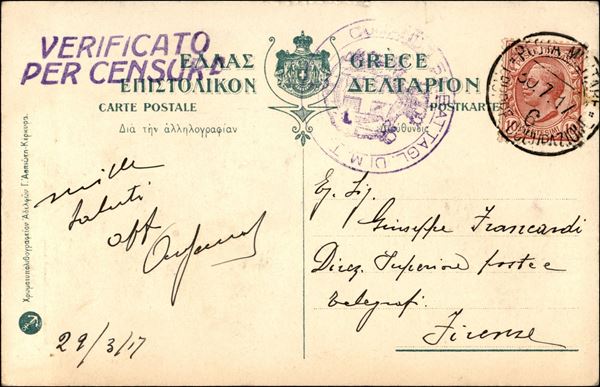 VERIFICATO
PER CENSURA
ΕΛΛΑΣ GRÈCE
ΕΠΙΣΤΟΛΙΚΟΝ ΔΕΛΤΑΡΙΟΝ
CARTE POSTALE POSTKARTE
Διὰ τὴν ἀλληλογραφίαν Διεύθυνσις
BATTAGL. DI M. T.
POSTA MILITARE
mille
saluti
aff
29/3/17
Eg. Sig.
Giuseppe Francardi
Direz. Superiore postee
telegrafi.
Firenze
Χρωματυπολιθογραφεῖον Ἀδελφῶν Γ. Ἀσπιώτη-Κέρκυρα.